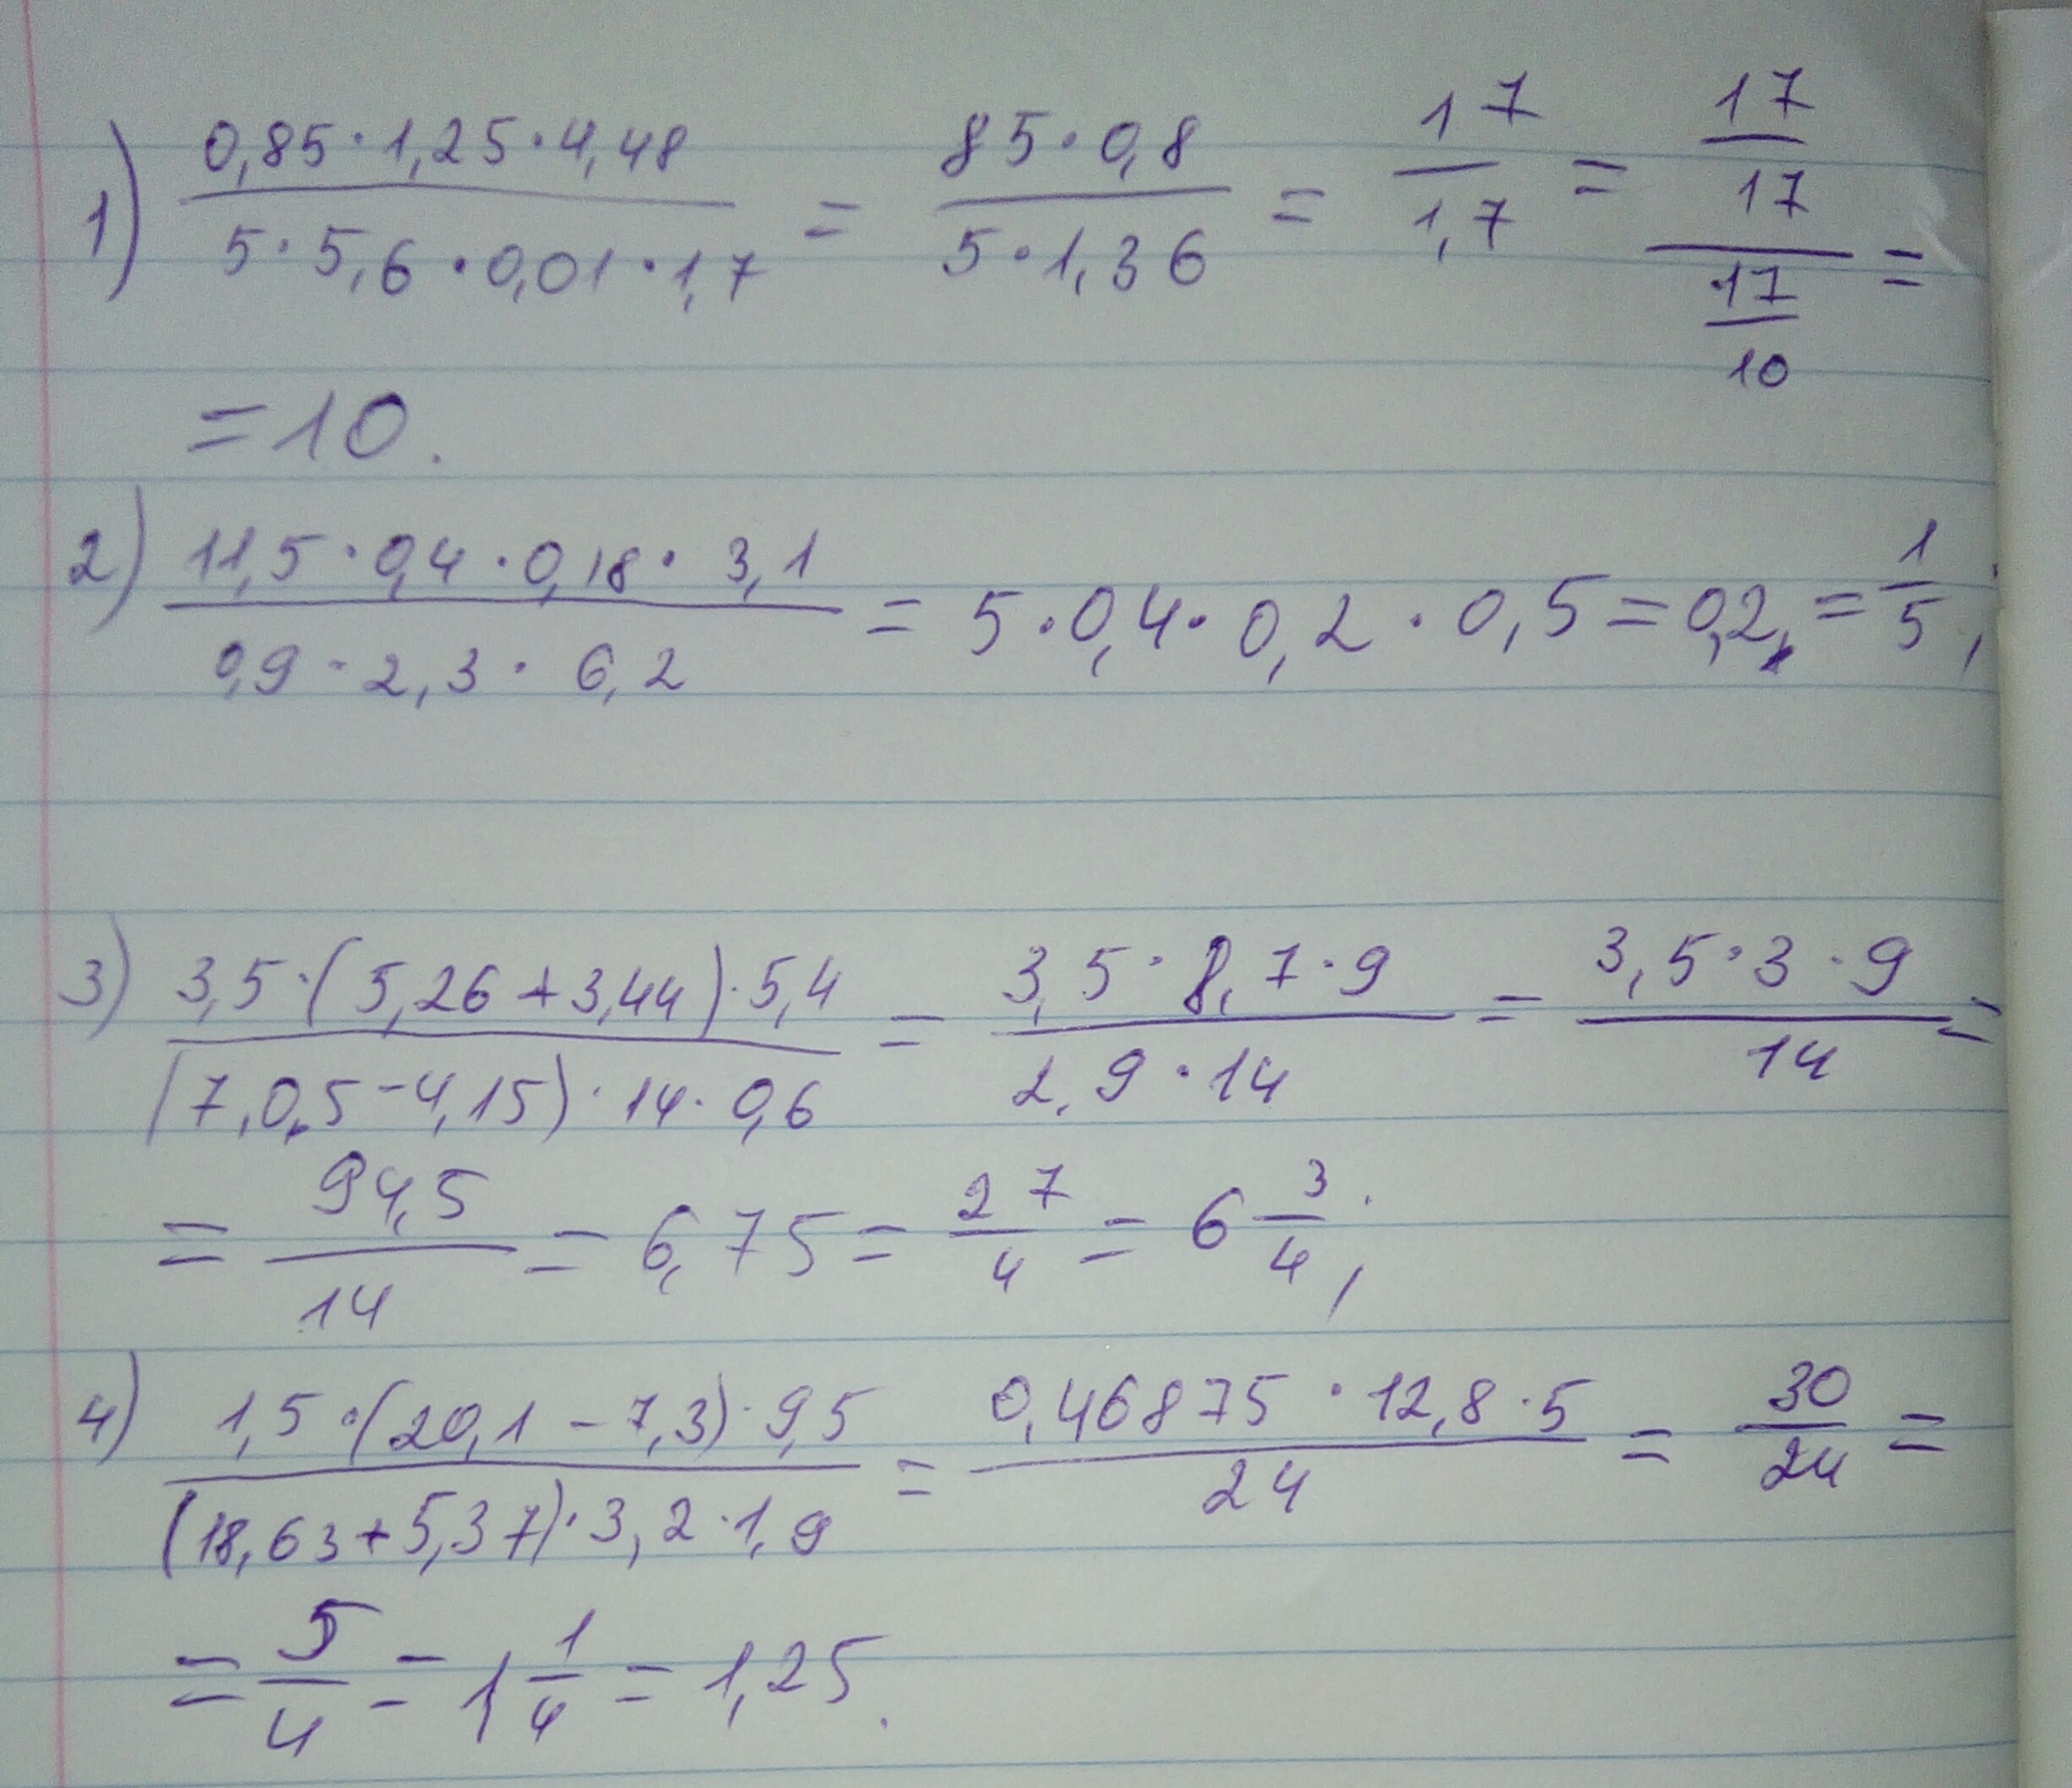 1) (0,85·1,25·4,48)/(5·5,6·0,01·1,7) = (85·0,8)/(5·1,36) = 17/1,7 = (17/17)/(17/10) =
= 10.
2) (11,5·0,4·0,18·3,1)/(0,9·2,3·6,2) = 5·0,4·0,2·0,5 = 0,2 = 1/5;
3) (3,5·(5,26+3,44)·5,4)/((7,0,5-4,15)·14·0,6) = (3,5·8,7·9)/(2,9·14) = (3,5·3·9)/14 =
= 94,5/14 = 6,75 = 27/4 = 6 3/4;
4) (1,5·(20,1-7,3)·9,5)/((18,63+5,37)·3,2·1,9) = (0,46875·12,8·5)/24 = 30/24 =
= 5/4 = 1 1/4 = 1,25.